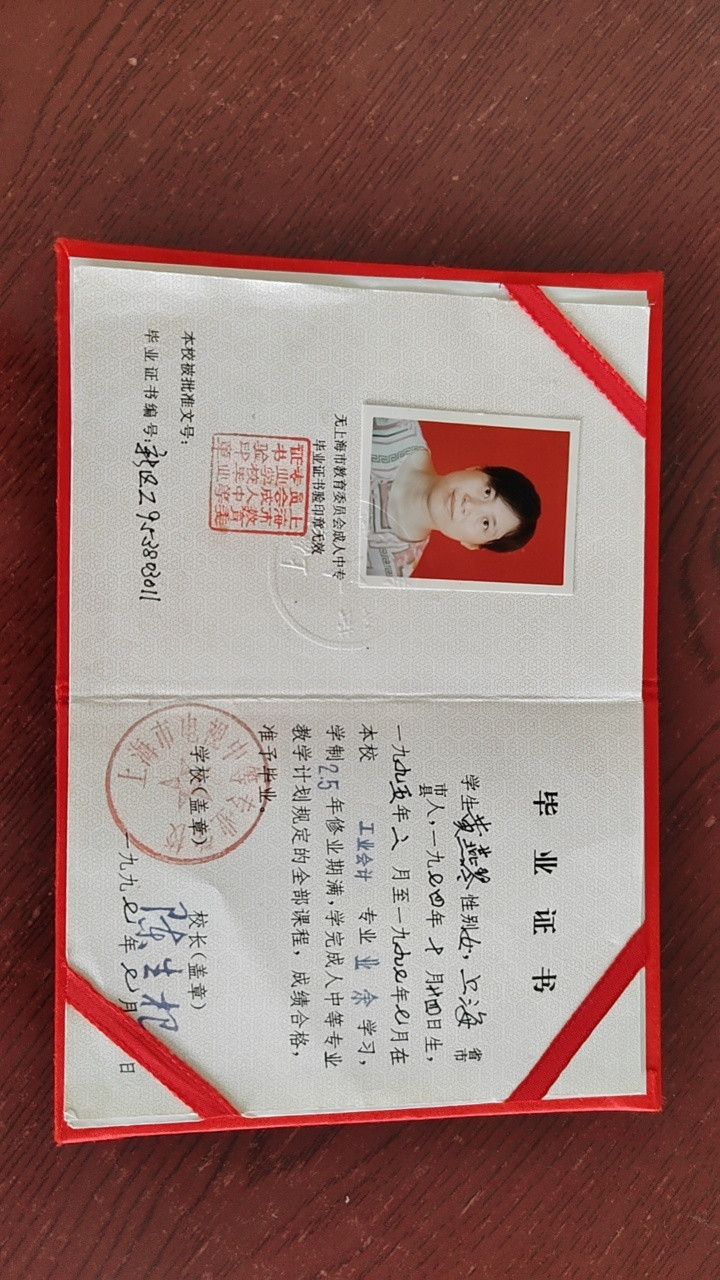 无上海市教育委员会成人中专
毕业证书验印章无效
上海市教育
委员会成人中
等专业学校毕业
证书验印章
本校被批准文号：
毕业证书编号：新区工95-2803011
毕业证书
学生黄燕琴性别女，上海省市
市县人，一九七四年十月廿四日生，
一九九五年二月至一九九七年七月在
本校 工业会计 专业业余学习，
学制2.5年修业期满，学完成人中等专业
教学计划规定的全部课程，成绩合格，
准予毕业。
学校（盖章） 校长（盖章）
一九九七年七月 日